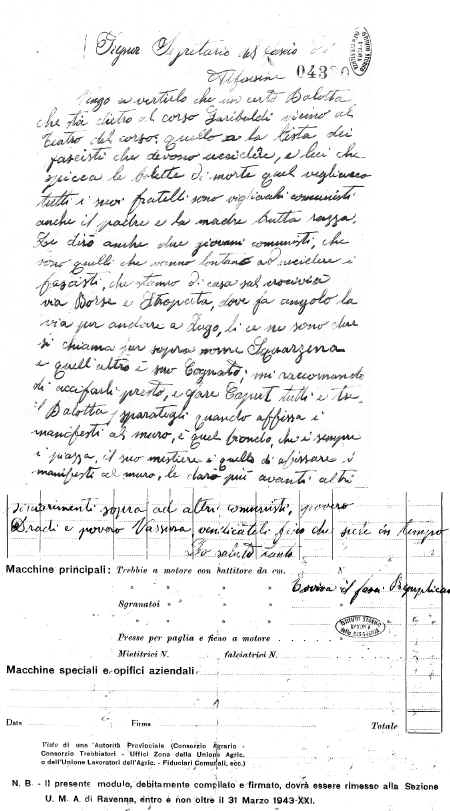 Signor Segretario del fascio di
Alfonsine 043
Vengo a vertirlo che un certo Balotta
che sta dietro al corso Garibaldi vicino al
teatro del corso, quello a la testa dei
fascisti che devono uccidere, e leci che
spicca le bolette di morte quel vegliacco
tutti i suoi fratelli sono vigliachi comunisti
anche il padre e la madre brutta razza.
Le dirò anche due giovani comunisti, che
sono quelli che vanno lontano ad uccidere i
fascisti, che stanno di casa sul crocivia
via Borse e Stropata, dove fa angolo la
via per andare a Lugo, li ce ne sono due
si chiama per sopra nome Squarzena
e quell'altro è suo Cognato; mi raccomando
di accifarli presto, e fare Caput tutti e tre.
il Balotta, sparategli quando affissa i
manifesti al muro, è quel biondo, che è sempre
i piazza, il suo mestiere è quello di afissare i
manifesti al muro, le darò più avanti altri
sciarimenti sopra ad altri comunisti, povero
Dradi e povero Vassura vendicateli fino che siete in tempo
Lo saluto tanto
Evviva il fascio Repuplicano
Macchine principali: Trebbie a motore con battitore da cm. N.
" " " " "
Sgranatoi " " " "
" " " "
Presse per paglia e fieno a motore
Mietitrici N. falciatrici N.
Macchine speciali e opifici aziendali
Data Firma Totale
Visto di una Autorità Provinciale (Consorzio Agrario -
Consorzio Trebbiatori - Uffici Zona della Unione Agric.
o dell'Unione Lavoratori dell'Agric. - Fiduciari Comunali, ecc.)
N. B. - Il presente modulo, debitamente compilato e firmato, dovrà essere rimesso alla Sezione
U. M. A. di Ravenna, entro e non oltre il 31 Marzo 1943-XXI.